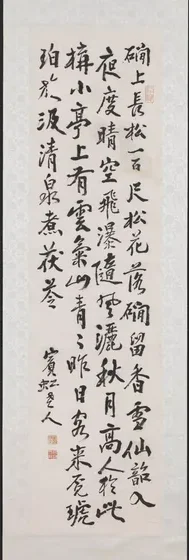 磵上長松一百尺松花落磵留香雪仙韶入
夜度晴空飛瀑隨風灑秋月高人於此
構小亭上有雲氣山青〻昨日客來覓琥
珀爲汲清泉煮茯苓
賓虹老人